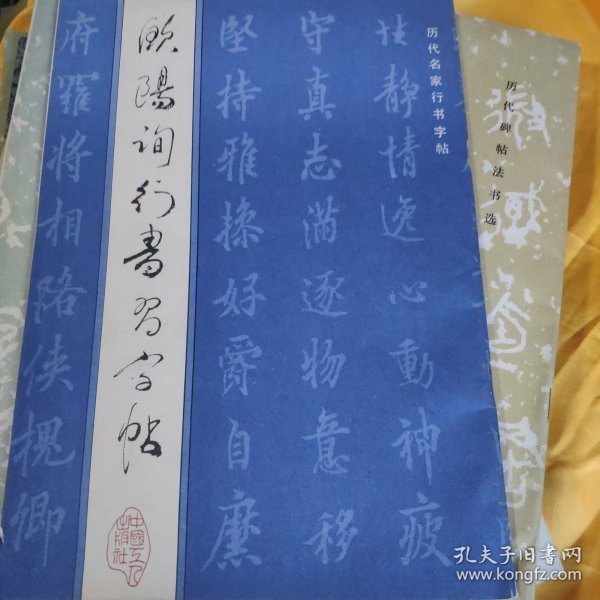 历代名家行书字帖
性静情逸心动神疲
守真志满逐物意移
坚持雅操好爵自縻
欧陽询行書習字帖
中國工人
出版社
府羅将相路侠槐卿
历代碑帖法书选
孔夫子旧书网
www.kongfz.com